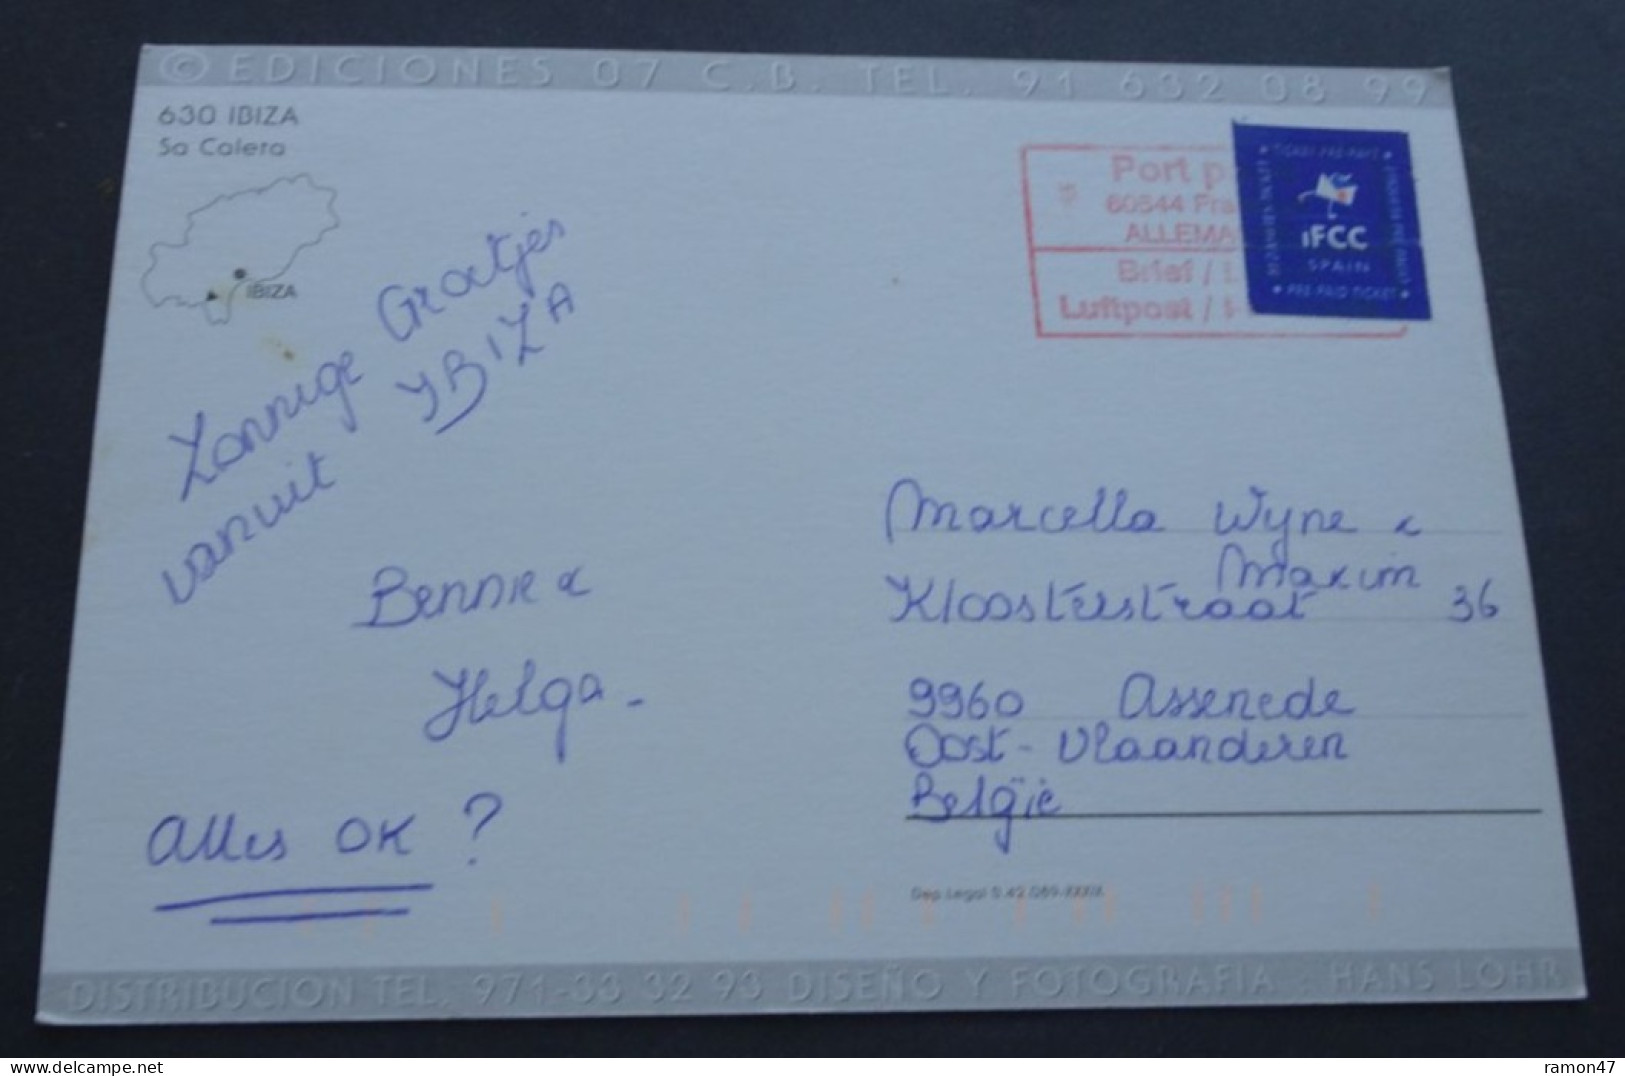 © EDICIONES 07 C.B. TEL. 91 632 08 99
630 IBIZA
Sa Caleta
IBIZA
Port p
60544 Fra
ALLEMA
Brief / L
Luftpost /
• TICKET PRE-PAYE •
iFCC
SPAIN
• PRE-PAID TICKET •
Zonnige Groetjes
vanuit YBIZA
Bennie &
Helga -
Alles OK ?
Marcella Wyne &
Maxim
Kloosterstraat 36
9960 Assenede
Oost-Vlaanderen
België
Dep. Legal B.42.069-XXXIX
DISTRIBUCION TEL. 971-33 32 93 DISEÑO Y FOTOGRAFIA : HANS LOHR
ramon47